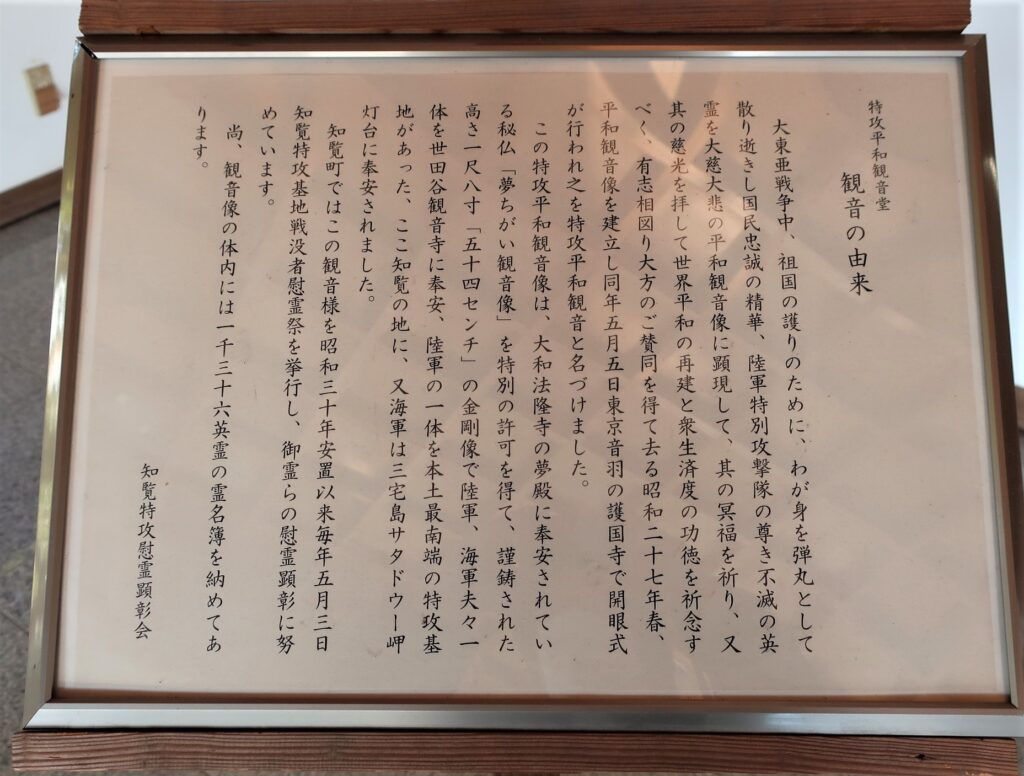 特攻平和観音堂
観音の由来
大東亜戦争中、祖国の護りのために、わが身を弾丸として
散り逝きし国民忠誠の精華、陸軍特別攻撃隊の尊き不滅の英
霊を大慈大悲の平和観音像に顕現して、其の冥福を祈り、又
其の慈光を拝して世界平和の再建と衆生済度の功徳を祈念す
べく、有志相図り大方のご賛同を得て去る昭和二十七年春、
平和観音像を建立し同年五月五日東京音羽の護国寺で開眼式
が行われ之を特攻平和観音と名づけました。
この特攻平和観音像は、大和法隆寺の夢殿に奉安されてい
る秘仏「夢ちがい観音像」を特別の許可を得て、謹鋳された
高さ一尺八寸「五十四センチ」の金剛像で陸軍、海軍夫々一
体を世田谷観音寺に奉安、陸軍の一体を本土最南端の特攻基
地があった、ここ知覧の地に、又海軍は三宅島サタドウー岬
灯台に奉安されました。
知覧町ではこの観音様を昭和三十年安置以来毎年五月三日
知覧特攻基地戦没者慰霊祭を挙行し、御霊らの慰霊顕彰に努
めています。
尚、観音像の体内には一千三十六英霊の霊名簿を納めてあ
ります。
知覧特攻慰霊顕彰会